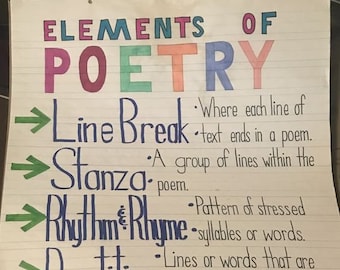 ELEMENTS OF
POETRY
Line Break • Where each line of
text ends in a poem.
Stanza • A group of lines within the
poem.
Rhythm & Rhyme • Pattern of stressed
syllables or words.
• Lines or words that are